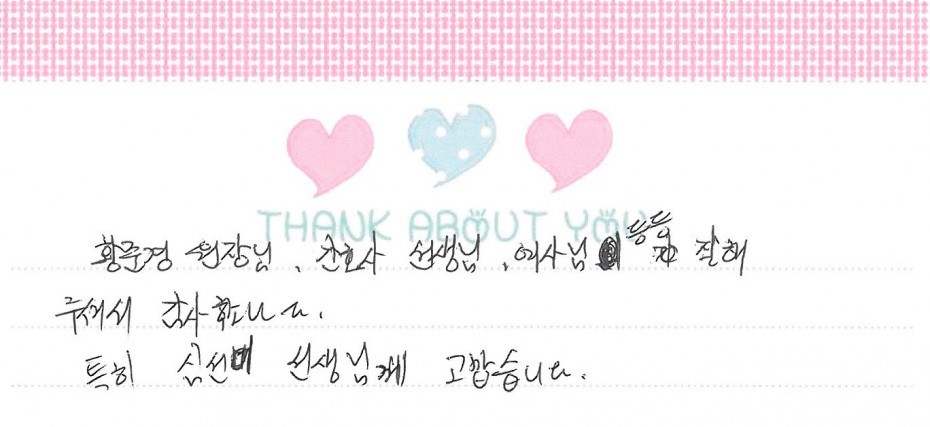 THANK ABOUT YOU
황준경 원장님, 간호사 선생님, 여사님 등등 잘해
주셔서 감사합니다.
특히 심선미 선생님께 고맙습니다.